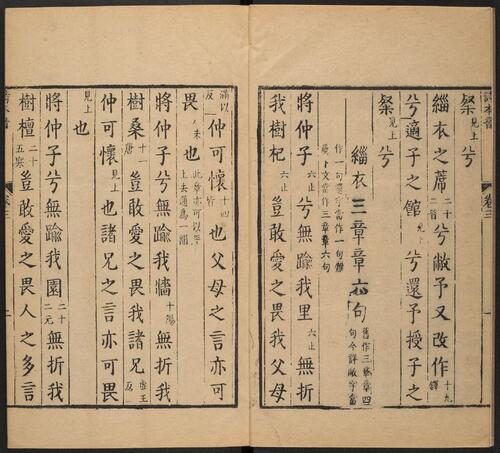 粲見上兮
緇衣之蓆二十二昔兮敝予又改作十九鐸
兮適子之館見上兮還予授子之
粲見上兮
緇衣三章章六句舊作三章章四句今詳敝字當
作一句還字當作一句
文當作三章章六句
將仲子六止兮無踰我里六止無折
我樹杞六止豈敢愛之畏我父母
滿以反仲可懷十四皆也父母之言亦可
畏八未也此章亦可以平上去通爲一韻
將仲子兮無踰我牆十陽無折我
樹桑十一唐豈敢愛之畏我諸兄虛王反
仲可懷見上也諸兄之言亦可畏
見上也
將仲子兮無踰我園二十二元無折我
樹檀二十五寒豈敢愛之畏人之多言
卷三